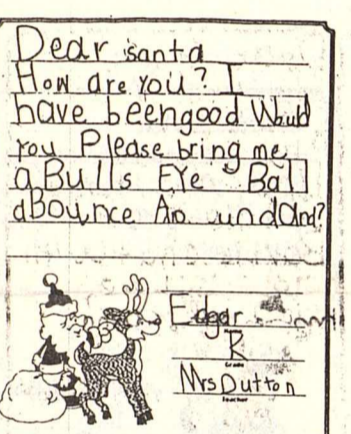 Dear santa
How are you? I
have beengood Would
you Please bring me
a Bulls EYe Ball
a Bounce An undand?
Edgar
K
Grade
Mrs Dutton
Teacher